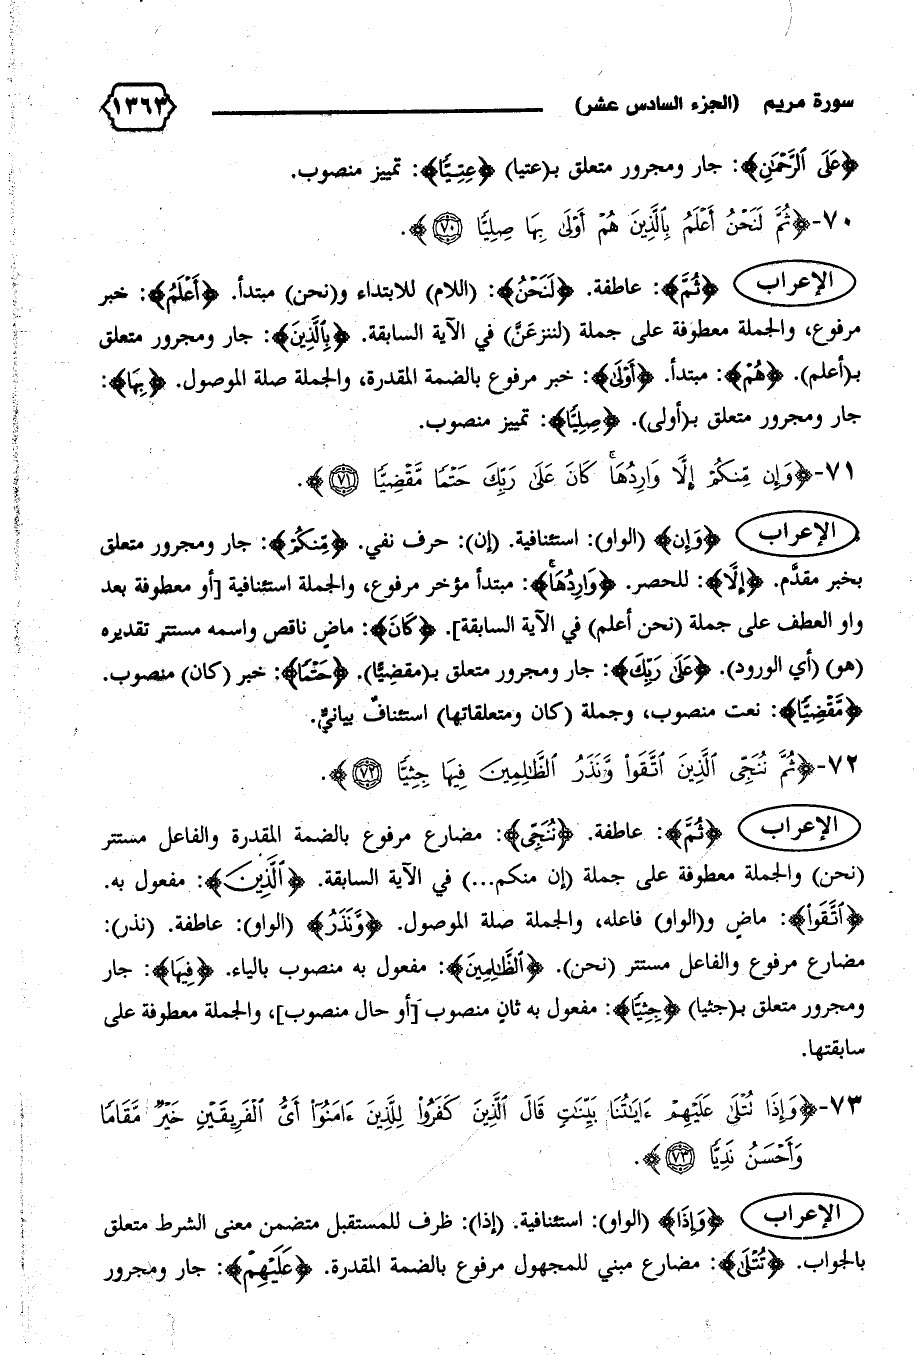 سورة مريم (الجزء السادس عشر) ١٣٦٣
﴿عَلَى ٱلرَّحْمَٰنِ﴾: جار ومجرور متعلق بـ(عتيا) ﴿عِتِيًّا﴾: تمييز منصوب.
٧٠-﴿ثُمَّ لَنَحْنُ أَعْلَمُ بِٱلَّذِينَ هُمْ أَوْلَىٰ بِهَا صِلِيًّا ٧٠﴾.
الإعراب ﴿ثُمَّ﴾: عاطفة. ﴿لَنَحْنُ﴾: (اللام) للابتداء و(نحن) مبتدأ. ﴿أَعْلَمُ﴾: خبر
مرفوع، والجملة معطوفة على جملة (لننزعَنَّ) في الآية السابقة. ﴿بِٱلَّذِينَ﴾: جار ومجرور متعلق
بـ(أعلم). ﴿هُمْ﴾: مبتدأ. ﴿أَوْلَىٰ﴾: خبر مرفوع بالضمة المقدرة، والجملة صلة الموصول. ﴿بِهَا﴾:
جار ومجرور متعلق بـ(أولى). ﴿صِلِيًّا﴾: تمييز منصوب.
٧١-﴿وَإِن مِّنكُمْ إِلَّا وَارِدُهَا ۚ كَانَ عَلَىٰ رَبِّكَ حَتْمًا مَّقْضِيًّا ٧١﴾.
الإعراب ﴿وَإِن﴾ (الواو): استئنافية. (إن): حرف نفي. ﴿مِّنكُمْ﴾: جار ومجرور متعلق
بخبر مقدَّم. ﴿إِلَّا﴾: للحصر. ﴿وَارِدُهَا ۚ﴾: مبتدأ مؤخر مرفوع، والجملة استئنافية [أو معطوفة بعد
واو العطف على جملة (نحن أعلم) في الآية السابقة]. ﴿كَانَ﴾: ماضٍ ناقص واسمه مستتر تقديره
(هو) (أي الورود). ﴿عَلَىٰ رَبِّكَ﴾: جار ومجرور متعلق بـ(مقضيًّا). ﴿حَتْمًا﴾: خبر (كان) منصوب.
﴿مَّقْضِيًّا﴾: نعت منصوب، وجملة (كان ومتعلقاتها) استئنافٌ بيانيٌّ.
٧٢-﴿ثُمَّ نُنَجِّى ٱلَّذِينَ ٱتَّقَوا۟ وَّنَذَرُ ٱلظَّٰلِمِينَ فِيهَا جِثِيًّا ٧٢﴾.
الإعراب ﴿ثُمَّ﴾: عاطفة. ﴿نُنَجِّى﴾: مضارع مرفوع بالضمة المقدرة والفاعل مستتر
(نحن) والجملة معطوفة على جملة (إن منكم...) في الآية السابقة. ﴿ٱلَّذِينَ﴾: مفعول به.
﴿ٱتَّقَوا۟﴾: ماضٍ و(الواو) فاعله، والجملة صلة الموصول. ﴿وَّنَذَرُ﴾ (الواو): عاطفة. (نذر):
مضارع مرفوع والفاعل مستتر (نحن). ﴿ٱلظَّٰلِمِينَ﴾: مفعول به منصوب بالياء. ﴿فِيهَا﴾: جار
ومجرور متعلق بـ(جثيا) ﴿جِثِيًّا﴾: مفعول به ثانٍ منصوب [أو حال منصوب]، والجملة معطوفة على
سابقتها.
٧٣-﴿وَإِذَا تُتْلَىٰ عَلَيْهِمْ ءَايَٰتُنَا بَيِّنَٰتٍ قَالَ ٱلَّذِينَ كَفَرُوا۟ لِلَّذِينَ ءَامَنُوٓا۟ أَىُّ ٱلْفَرِيقَيْنِ خَيْرٌ مَّقَامًا
وَأَحْسَنُ نَدِيًّا ٧٣﴾.
الإعراب ﴿وَإِذَا﴾ (الواو): استئنافية. (إذا): ظرف للمستقبل متضمن معنى الشرط متعلق
بالجواب. ﴿تُتْلَىٰ﴾: مضارع مبني للمجهول مرفوع بالضمة المقدرة. ﴿عَلَيْهِمْ﴾: جار ومجرور